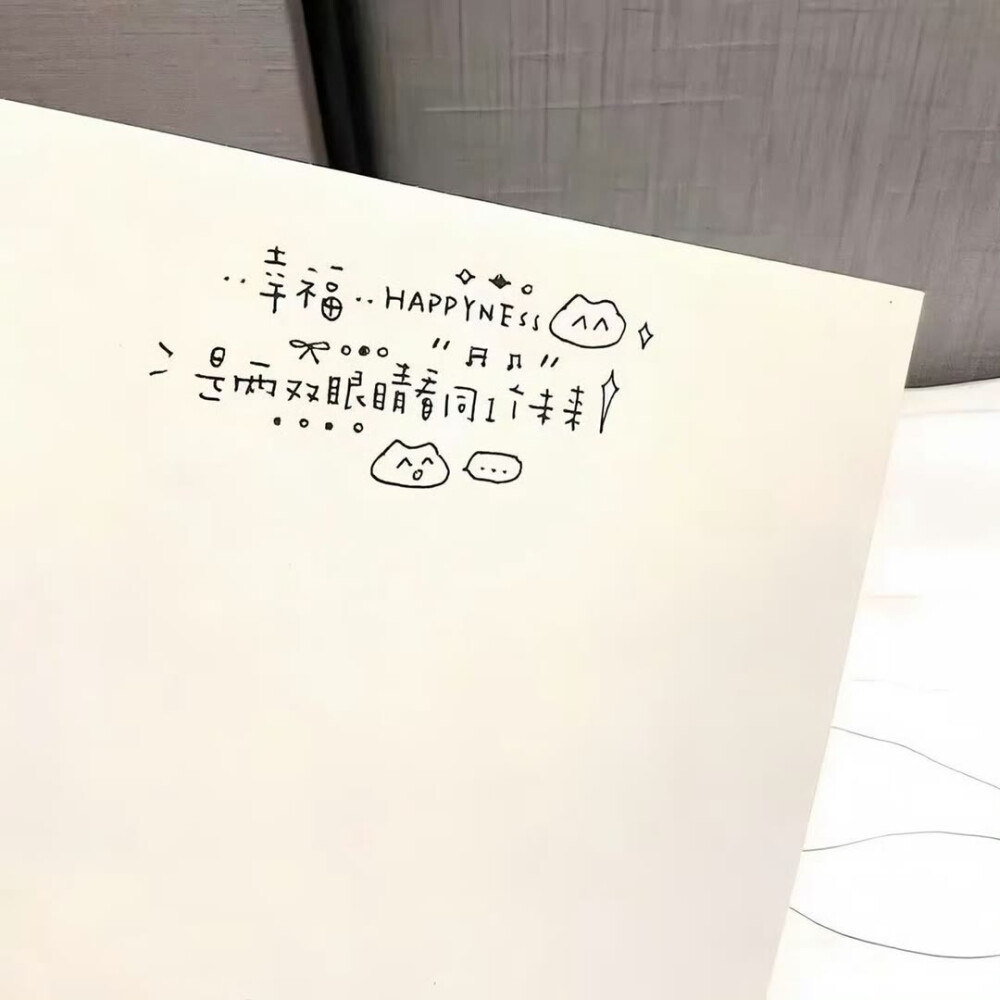 ..幸福..HAPPYNESS
是两双眼睛看同1个未来